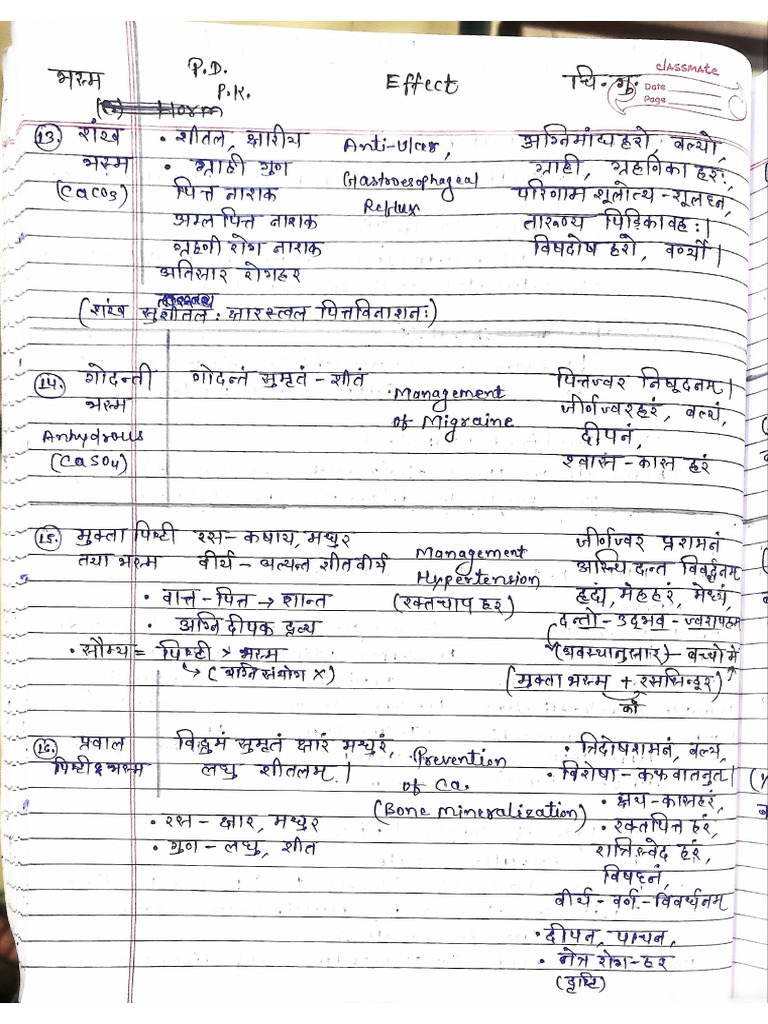 classmate
Date
Page
भस्म P.D. Effect चि. गु.
P.K.
13. शंख • शीतल, क्षारीय Anti-ulcer, अग्निमांद्यहरो, बल्यो,
भस्म • ग्राही गुण Gastroesophageal ग्राही, ग्रहणिकाहरः,
(CaCO3) पित्त नाशक Reflux परिणाम शूलोत्थ-शूलघ्न,
अम्ल पित्त नाशक तारुण्य पिडिकावहः।
ग्रहणी रोग नाशक विषदोष हरो, वर्ण्यो।
अतिसार रोगहर
(शंख सुशीतल: क्षारस्त्वल पित्तविनाशनः)
14. गोदन्ती गोदन्तं सुमृतं-शीतं • Management पित्तज्वर निषूदनम्।
भस्म of Migraine जीर्णज्वरहरं, बल्यं,
Anhydrous दीपनं,
(CaSO4) श्वास-कास हरं
15. मुक्ता पिष्टी रस-कषाय, मधुर जीर्णज्वर प्रशमनं
तथा भस्म वीर्य-अत्यन्त शीतवीर्य Management अस्थि दन्त विवर्द्धनम्
• वात-पित्त → शान्त Hypertension हृद्यं, मेहहरं, मेध्यं,
• अग्नि दीपक द्रव्य (रक्तचाप हर) दन्तो-उद्भव-ज्वरापहम
• सौम्य = पिष्टी > भस्म (अवस्थानुसार) - बच्चों में
↳ (अग्नि संयोग X) (मुक्ता भस्म + रससिन्दूर)
को
16. प्रवाल विद्रुमं सुमृतं क्षारं मधुरं, Prevention • त्रिदोषशमनं, बल्य,
पिष्टी & भस्म लघु शीतलम्। of Ca. • विशेषा-कफवातनुत।
(Bone mineralization) • क्षय-कासहरं,
• रस-क्षार, मधुर • रक्तपित्त हरं,
• गुण-लघु, शीत रात्रिस्वेद हरं,
विषघ्नं,
वीर्य-वर्ण-विवर्धनम
• दीपन, पाचन,
• नेत्र रोग-हर
(दृष्टि)